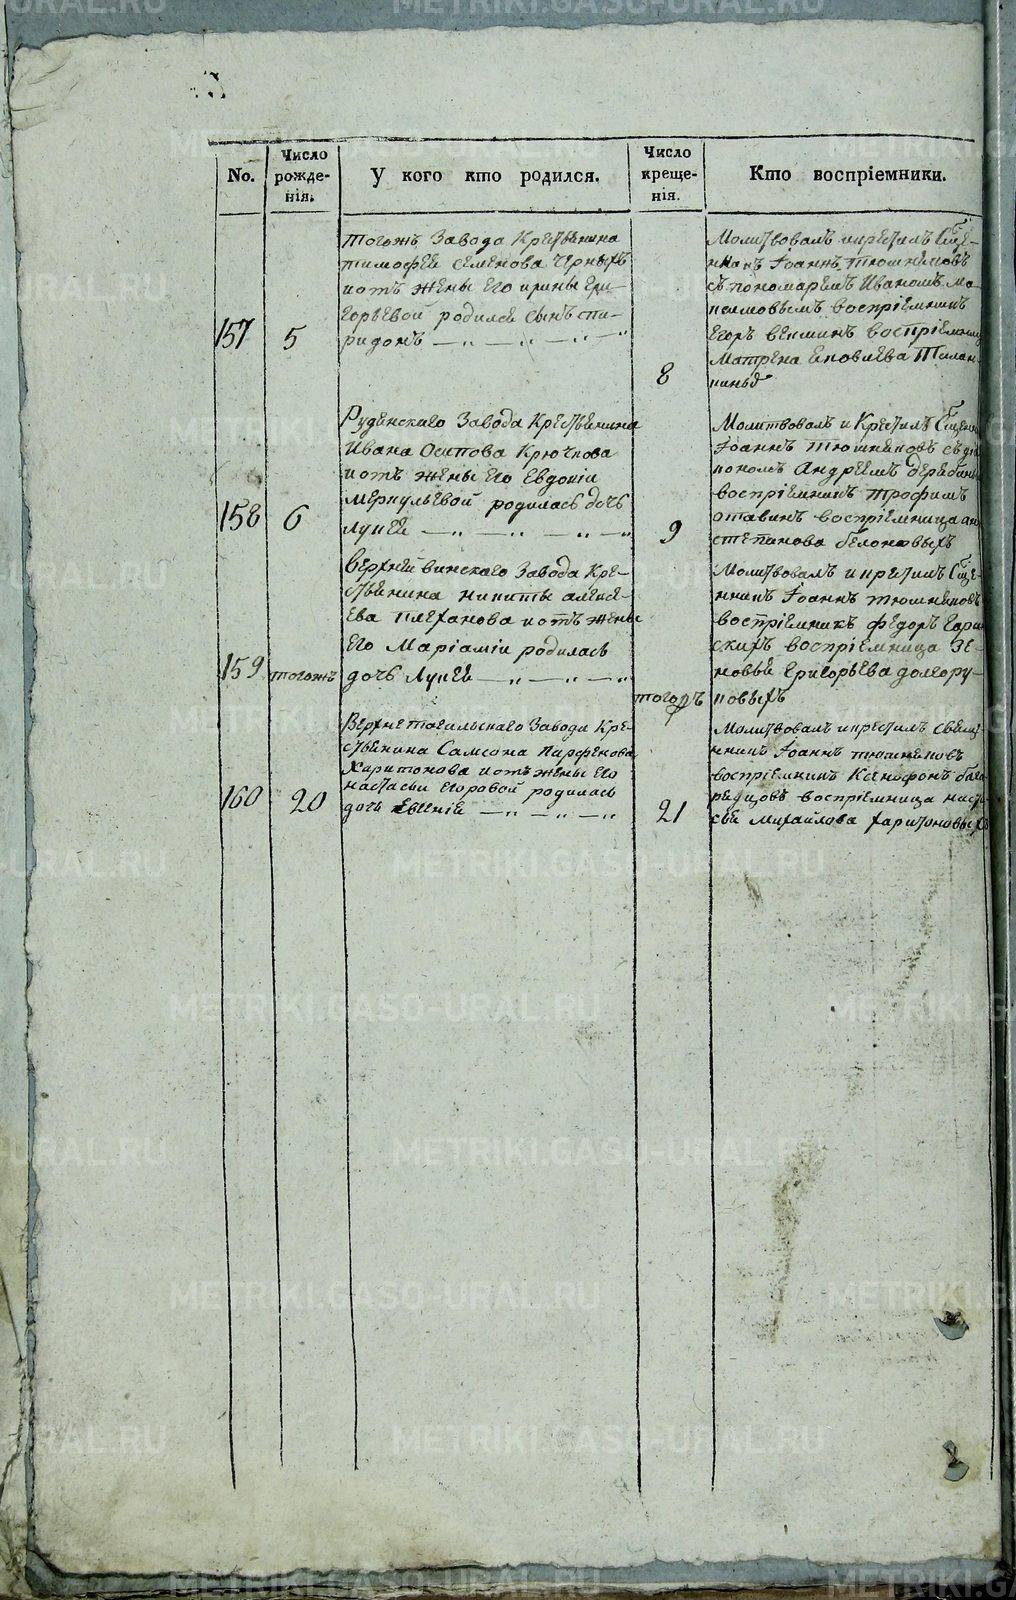 No.
Число рожде-
нія.
У кого кто родился.
Число креще-
нія.
Кто воспріемники.
157
5
тогожъ Завода Крестьянина
тимофея семенова Черныхъ
иотъ жены Его ирины Гри-
горьевой родился сынъ спи-
ридонъ
8
Молитвовалъ икрестилъ Свще-
нникъ Іоаннъ тюшняковъ
съ пономаремъ Иваномъ ма-
ксимовымъ воспріемникъ
Егоръ воспріемница
Матрена яковлева
158
6
Руденскаго Завода Крестьянина
Ивана Осипова Крючкова
иотъ жены Его Евдокіи
меркульевой родилась дочь
лукея
9
Молитвовалъ и Крестилъ Свщенн
Іоаннъ тюшняковъ съ дья
кономъ Андреемъ
воспріемникъ трофимъ
воспріемница
степанова
159
тогожъ
Верхнейвинскаго Завода Кре-
стьянина никиты алексе-
ева плеханова иотъ жены
Его Маріаміи родилась
дочь Лукея
тогожъ
Молитвовалъ и крестилъ Свще-
нникъ Іоаннъ тюшняковъ
воспріемникъ федоръ Гари
скихъ воспріемница Зе-
новья григорьева долгору-
ковыхъ
160
20
Верхнетагильскаго Завода Кре-
стьянина Самсона Парфенова
Харитонова иотъ жены Его
настасьи Егоровой родилась
дочь Евгенія
21
Молитвовалъ икрестилъ свяще-
нникъ Іоаннъ тюшняковъ
воспріемникъ Ксенофонъ
воспріемница наста
сья михайлова харитоновыхъ
METRIKI.GASO-URAL.RU